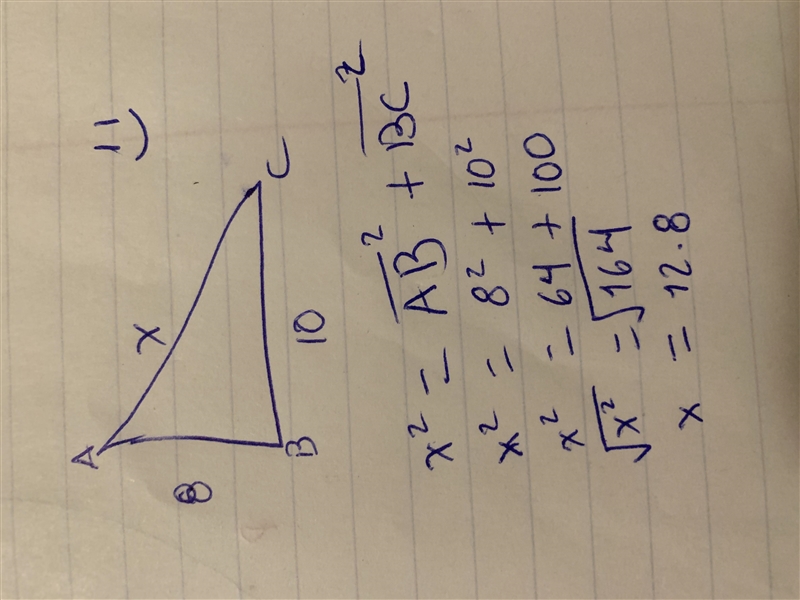 A
x
8
B
10
C
x² = AB² + BC²
x² = 8² + 10²
x² = 64 + 100
√x² = √164
x = 12.8